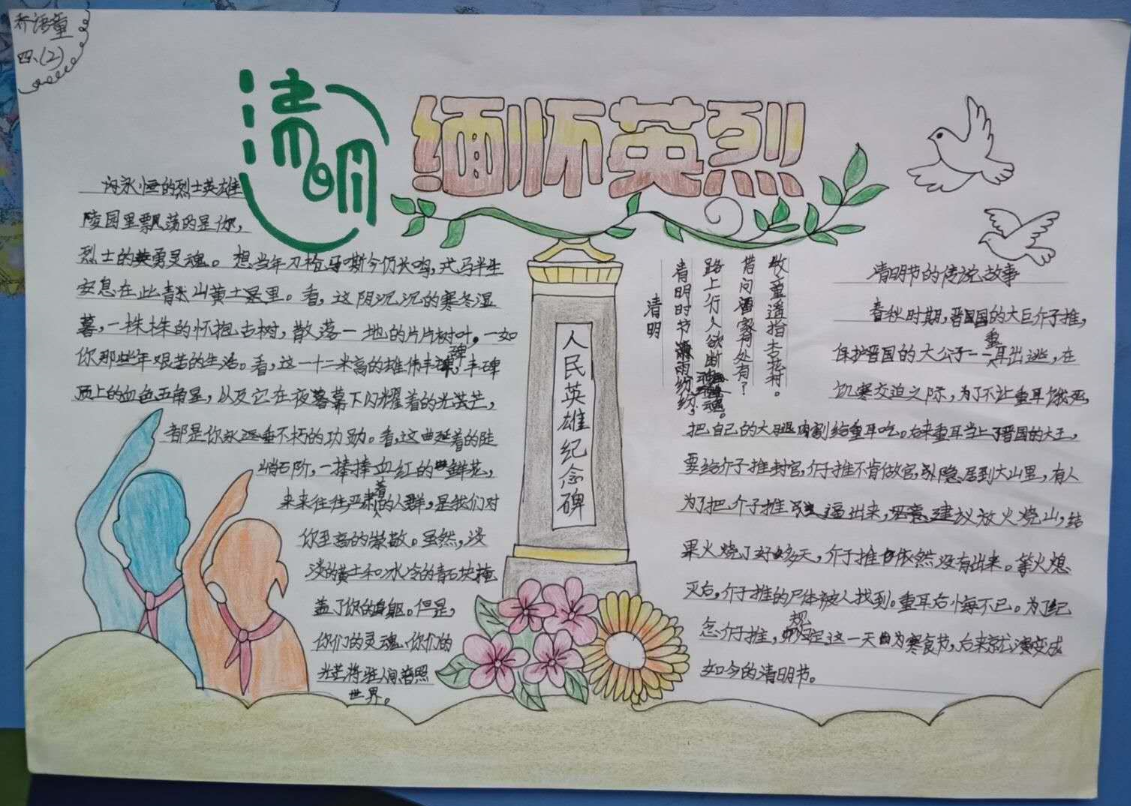 乔语童
四、(2)
清明
缅怀英烈
向永恒的烈士英雄
陵园里飘荡的是你,
烈士的英勇灵魂。想当年刀枪马嘶今仍长鸣,戎马半生
安息在此青山黄土里。看,这阴沉沉的寒冬湿
暮,一株株的怀抱古树,散落一地的片片树叶,一如
你那些年艰苦的生活。看,这一十二米高的雄伟丰碑,丰碑
顶上的血色五角星,以及它在夜幕下闪耀着的光芒,
都是你永远垂不朽的功勋。看,这曲延着的陡
峭石阶,一捧捧血红的鲜花,
来来往往严肃着的人群,是我们对
你至高的崇敬。虽然,淡
淡的黄土和冰冷的青石块掩
盖了你的身躯。但是,
你们的灵魂、你们的
光芒将在人间普照
世界。
人民英雄纪念碑
清明
清明时节雨纷纷,
路上行人欲断魂。
借问酒家何处有?
牧童遥指杏花村。
清明节的传说故事
春秋时期,晋国的大臣介子推,
保护晋国的大公子——重耳出逃,在
饥寒交迫之际,为了不让重耳饿死,
把自己的大腿肉割给重耳吃。后来重耳当上了晋国的大王,
要给介子推封官,介子推不肯做官,隐居到大山里,有人
为了把介子推逼出来,建议放火烧山,结
果火烧了好多天,介子推依然没有出来。等火熄
灭后,介子推的尸体被人找到。重耳后悔不已。为了纪
念介子推,把这一天由为寒食节,后来就演变成
如今的清明节。